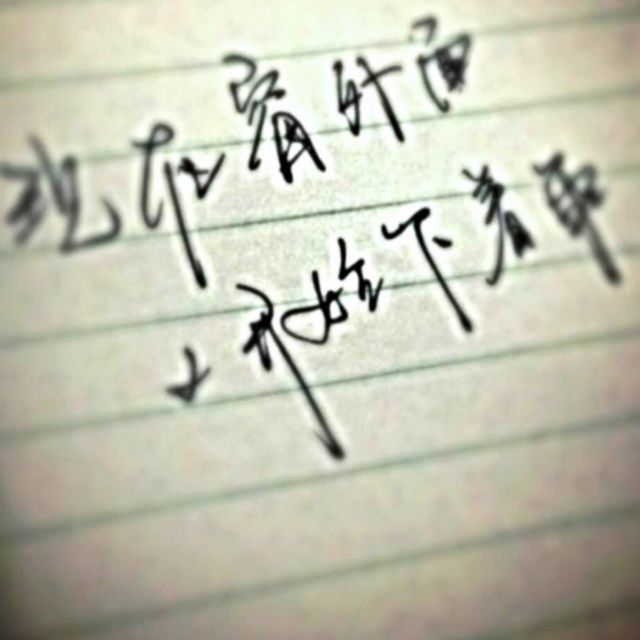 现在窗外面
又开始下着雨